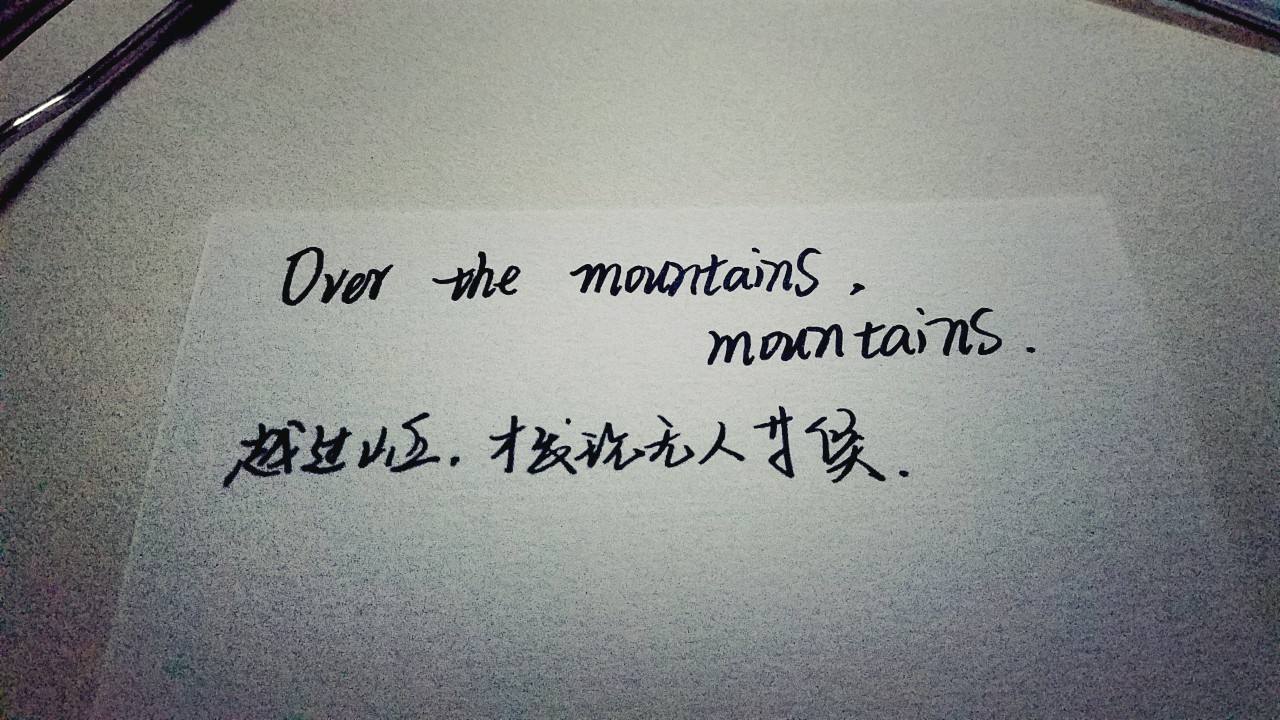 Over the mountains,
mountains.
越过山丘.才发现无人等候.